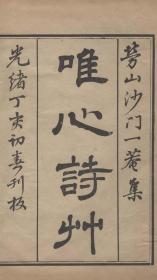 芳山沙门一菴集
唯心詩艸
光緒丁亥初春刊板